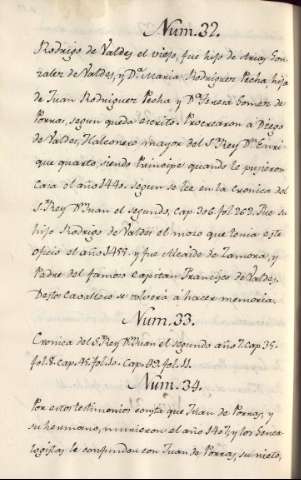 Num. 32.
Rodrigo de Valdes el viejo, fue hijo de Arias Gon
zalez de Valdes, y Dª Maria Rodriguez Pecha hija
de Juan Rodriguez Pecha y Dª Teresa Gomez de
Porras, segun queda escrito. Procrearon a Diego
de Valdes, Halconero mayor del Sr Rey Dn Enrri-
que quarto, siendo Principe quando le pusieron
casa el año 1440. segun se lee en la cronica del
Sr Rey Dn Juan el segundo, cap. 306. fol. 262. Fue su
hijo Rodrigo de Valdes el mozo que tenia este
oficio el año 1455. y fue Alcaide de Zamora, y
Padre del famoso Capitan Francisco de Valdes.
Destos cavalleros se volvera á hacer memoria.
Num. 33.
Cronica del Sr Rey Dn Juan el segundo año 7. Cap. 35.
fol. 8. cap. 45. fol. 10. Cap. 49. fol. 11.
Num. 34.
Por estos testimonios consta que Juan de Porras, y
su hermano, murieron el año 1407, y los Genea
logistas le confunden con Juan de Porras, su nieto,